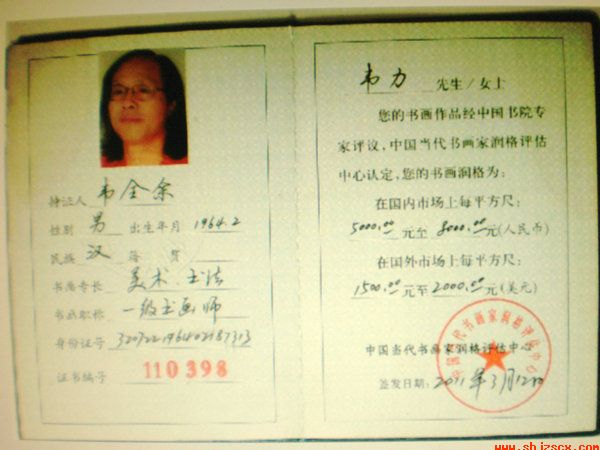 持证人 韦全余
性别 男 出生年月 1964.2
民族 汉 籍贯
书画专长 美术.书法
书画职称 一级书画师
身份证号 320722196402187313
证书编号 110398
韦力 先生/女士
您的书画作品经中国书院专
家评议,中国当代书画家润格评估
中心认定,您的书画润格为:
在国内市场上每平方尺:
5000.00 元至 8000.00 元(人民币)
在国外市场上每平方尺:
1500.00 元至 2000.00 元(美元)
中国当代书画家润格评估中心
签发日期: 2011年3月12日
中国当代书画家润格评估中心